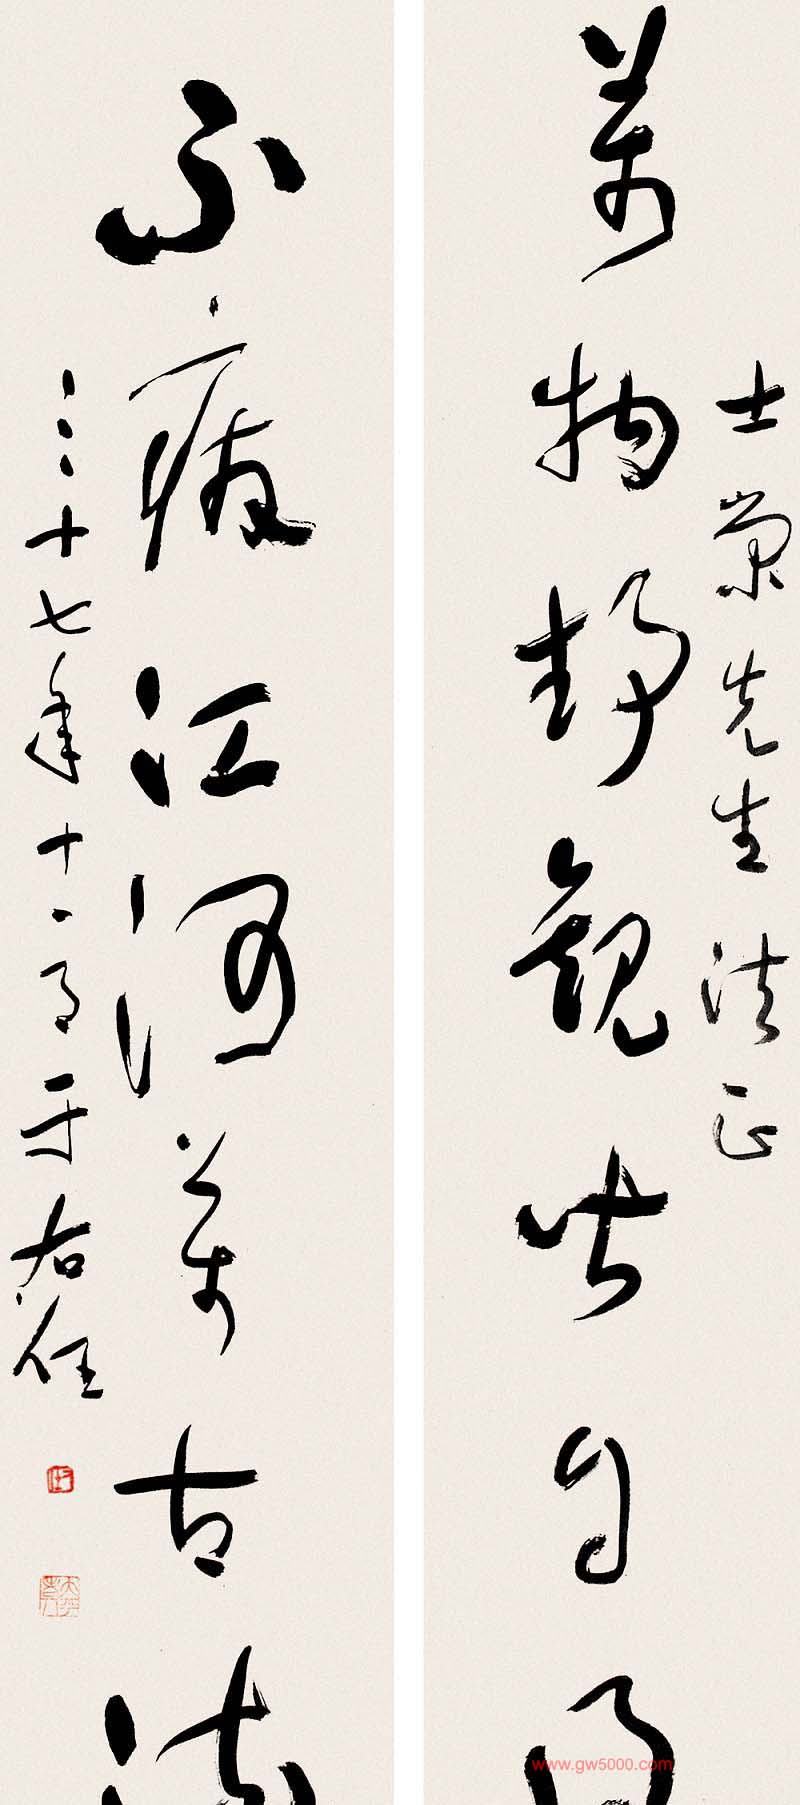 士榮先生法正
萬物靜觀皆自得
不廢江河萬古流
三十七年十一月于右任
www.gw5000.com